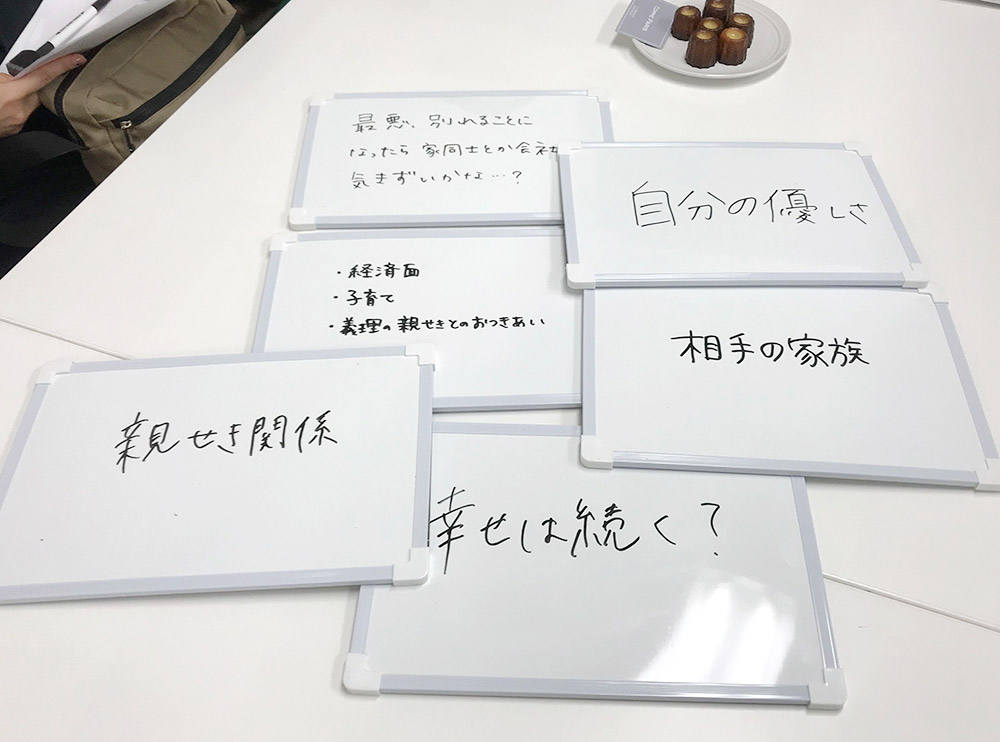 最悪、別れることに
なったら 家同士とか会社
気きずいかな…?
自分の優しさ
・経済面
・子育て
・義理の親せきとのおつきあい
相手の家族
親せき関係
幸せは続く?